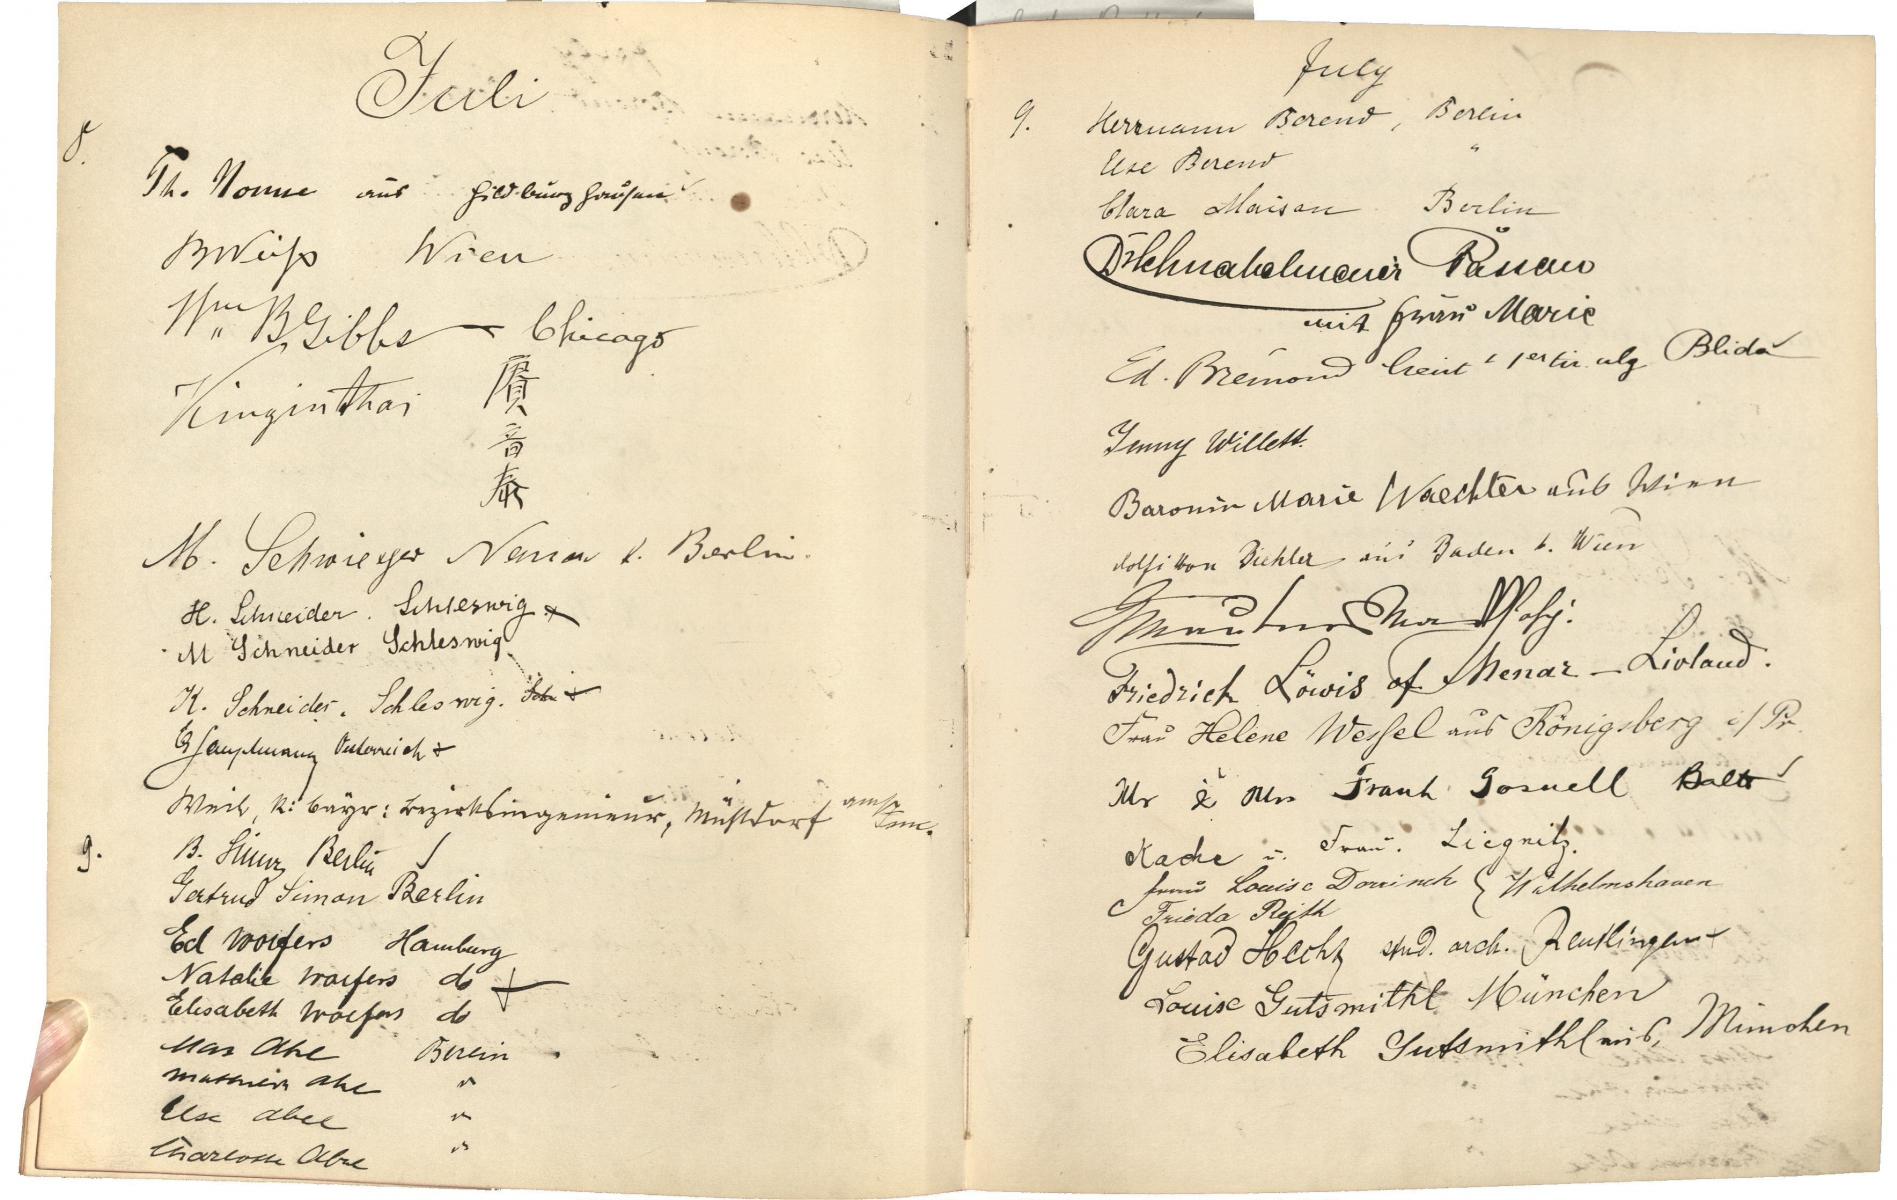 Juli
8.
Th. Nonne aus Hildburghausen
B Weiß Wien
Wm B Gibbs — Chicago
Kinginthai
賡
音
泰
M. Schwieger Berlin.
H. Schneider. Schleswig
M Schneider Schleswig
K. Schneider. Schleswig.
Österreich
Weil, K: bayr: Bezirksingenieur, Mühldorf
9.
B. Berlin
Gertrud Simon Berlin
Ed Woifers Hamburg
Natalie Woifers do
Elisabeth Woifers do
Max Abe Berlin
Abe "
Else Abee "
Charlotte Abee "
July
9. Herrmann Berend, Berlin
Else Berend "
Clara Maison Berlin
Passau
mit Frau Marie
Ed. Brémond Lieut 1er tir. alg Blida
Jenny Willett.
Baronin Marie Waechter aus Wien
von Pichler aus Baden b. Wien
Friedrich Löwis of Menar — Livland.
Frau Helene Wessel aus Königsberg i/Pr.
Mr & Mrs Frank Gosnell Balto
Kache u. Frau. Liegnitz.
Frau Louise Wilhelmshaven
Frieda Reith
Gustav Hecht stud. arch. Reutlingen
Louise Gutsmithl München
Elisabeth Gutsmithl aus, München